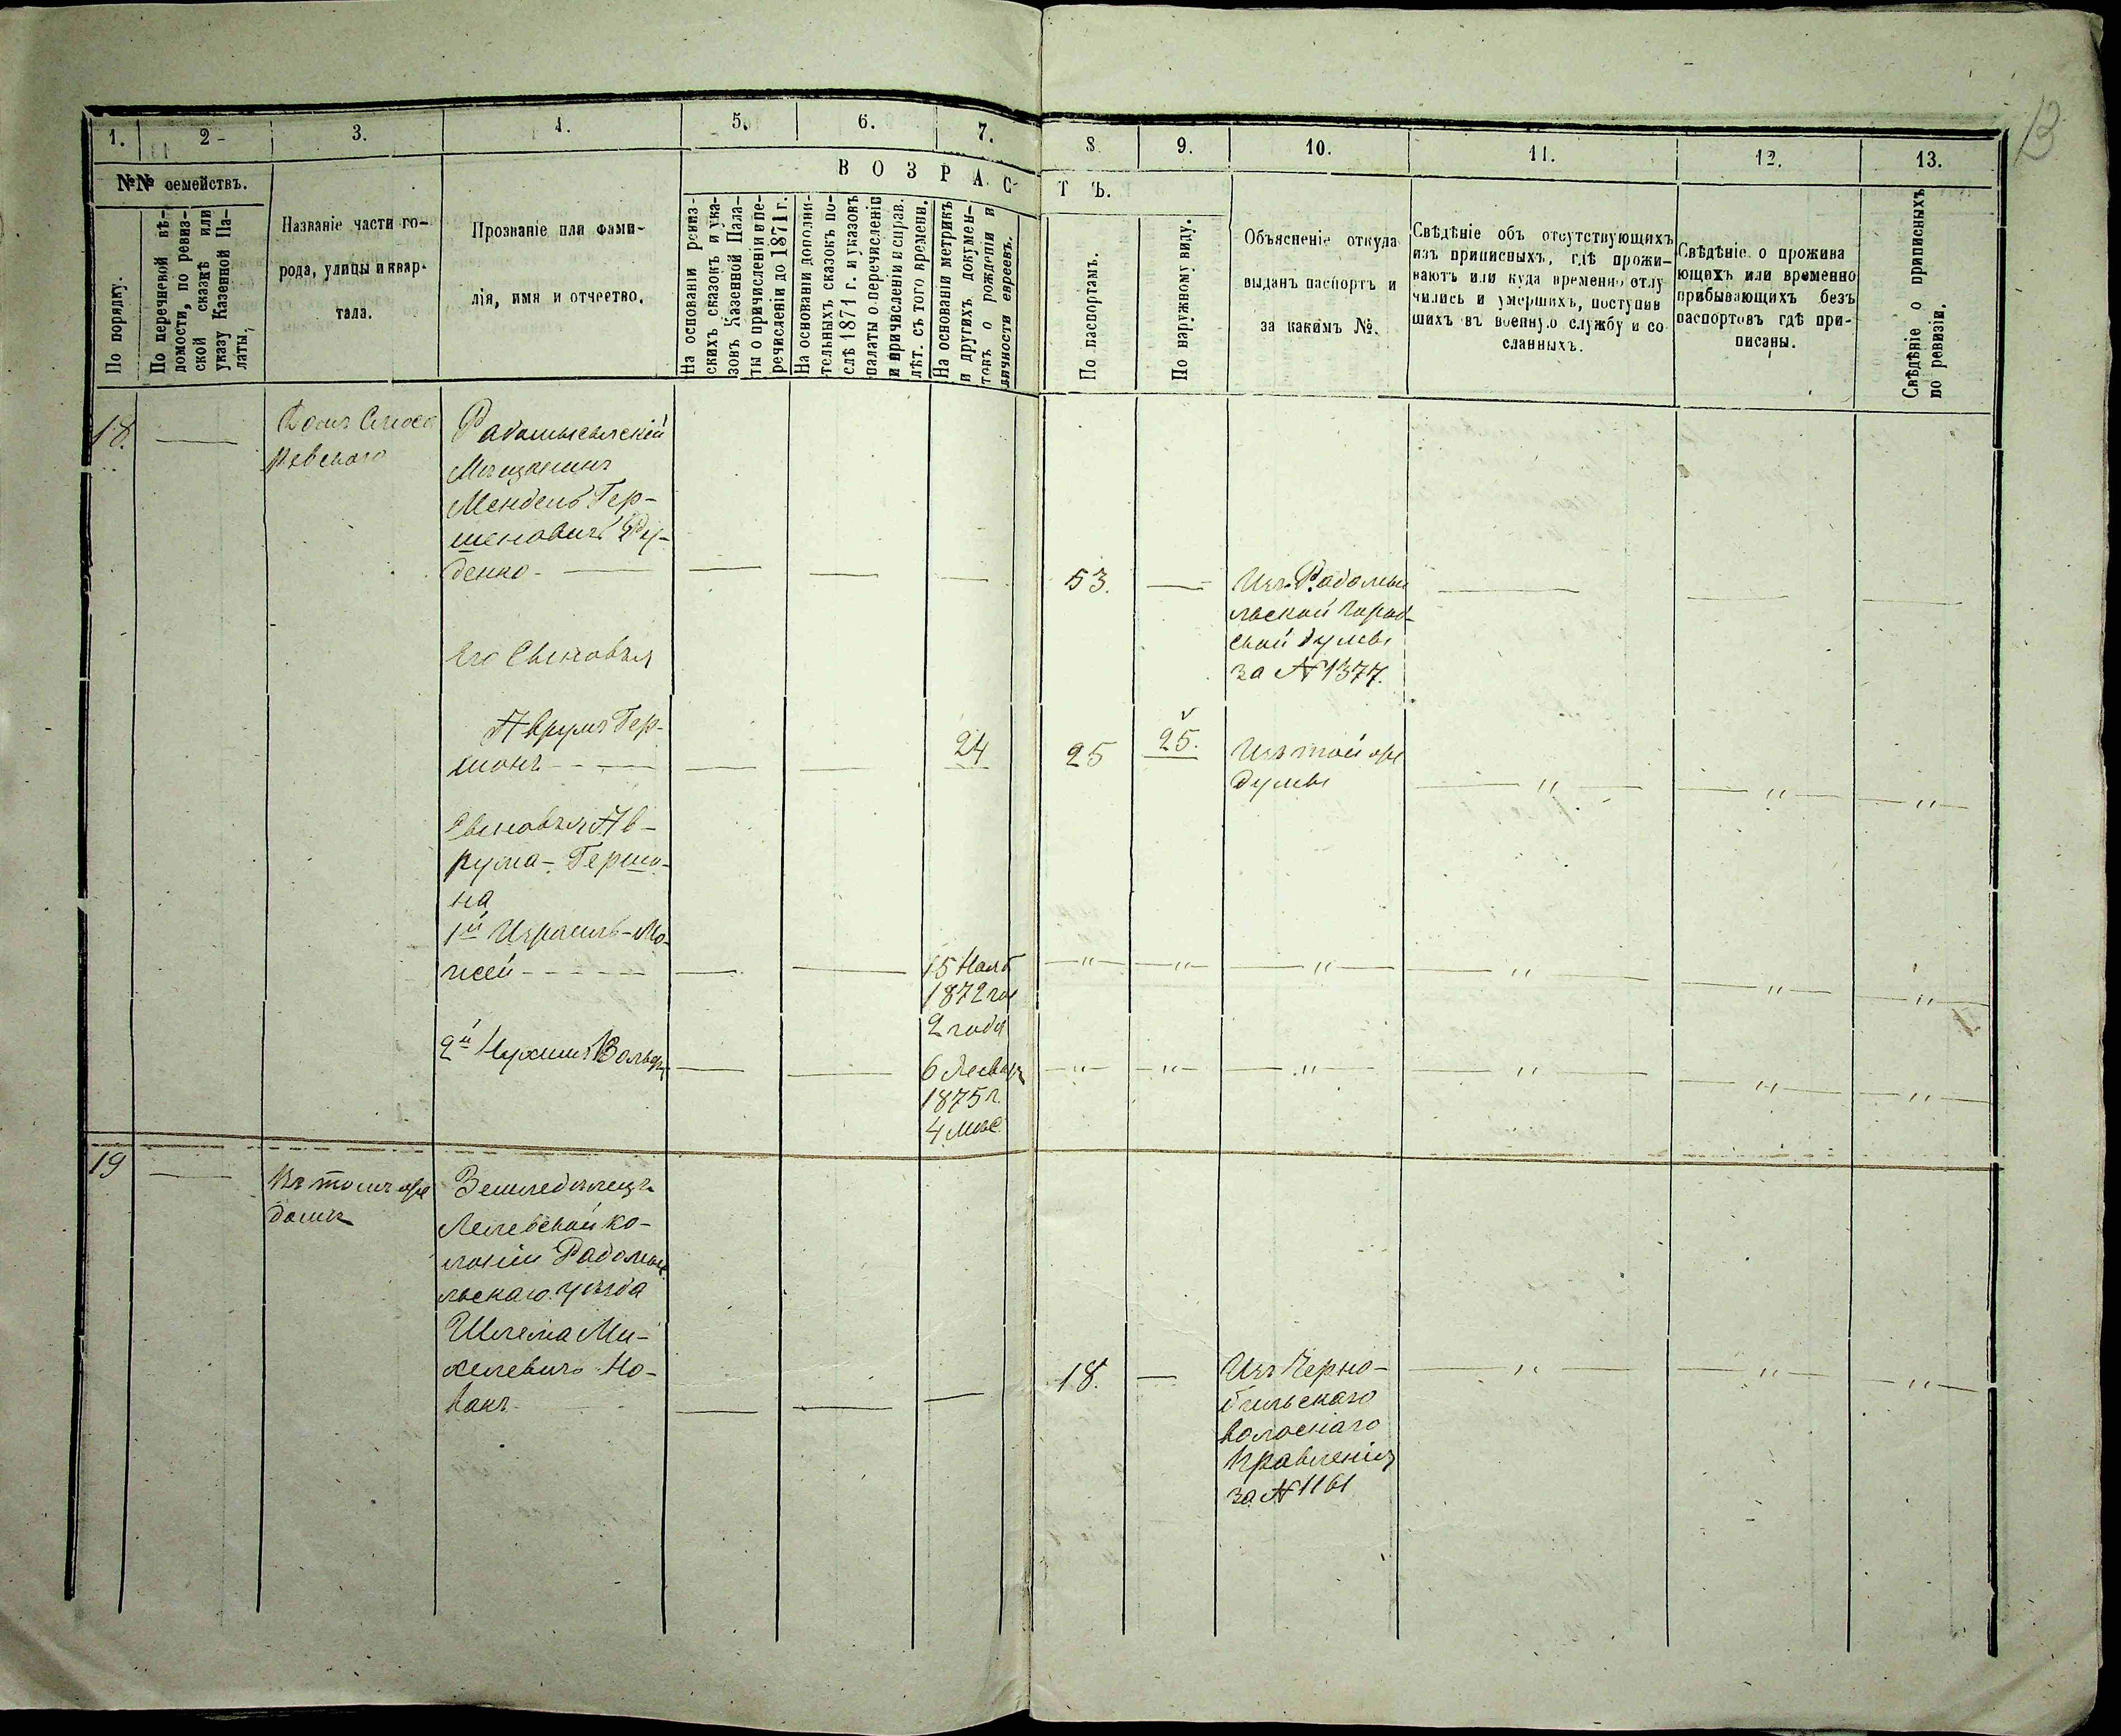 13
1. 2 - 3. 4. 5. 6. 7. 8. 9. 10. 11. 12. 13.
№№ семействъ.
По порядку.
По перечневой вѣ-
домости, по ревиз-
ской сказкѣ или
указу Казенной Па-
латы.
Названіе части го-
рода, улицы и квар-
тала.
Прозваніе или фами-
лія, имя и отчество.
ВОЗРАС-
ТЪ.
На основаніи ревиз-
скихъ сказокъ и ука-
зовъ Казенной Пала-
ты о причисленіи и пе-
речисленіи до 1871 г.
На основаніи дополни-
тельныхъ сказокъ по-
слѣ 1871 г. и указовъ
палаты о перечисленіи
и причисленіи и справ.
лѣт. съ того времени.
На основаніи метрикъ
и другихъ докумен-
товъ о рожденіи и
личности евреевъ.
По паспортамъ.
По наружному виду.
Объясненіе откуда
выданъ паспортъ и
за какимъ №.
Свѣдѣніе объ отсутствующихъ
изъ приписныхъ, гдѣ прожи-
ваютъ или куда временно отлу
чились и умершихъ, поступив
шихъ въ военную службу и со
сланныхъ.
Свѣдѣніе о прожива
ющихъ или временно
прибывающихъ безъ
паспортовъ гдѣ при-
писаны.
Свѣдѣніе о приписныхъ
по ревизіи.
18.
Домъ
Радомысльскій
Мѣщанинъ
Мендель Гер-
шеновичъ Ру-
денко -
53.
Изъ Радомы
льской Город-
ской думы
за № 1377.
Его Сыновья
Аврумъ Гер-
шонъ
24
25
25.
Изъ той же
думы
Сыновья Ав-
рума - Гершо-
на
1й Израиль-Мо-
исей
15 Нояб
1872 года
2 года
2й Нухимъ Вольфъ
6 Января
1875 г.
4 мѣс.
19
Въ томъ же
домѣ
Земледѣлецъ
ко-
лоніи Радомы
льскаго уѣзда
Шлема Ми-
хелевичъ Но-
вакъ
18.
Изъ Черно-
быльскаго
волоснаго
Правленія
за № 1161